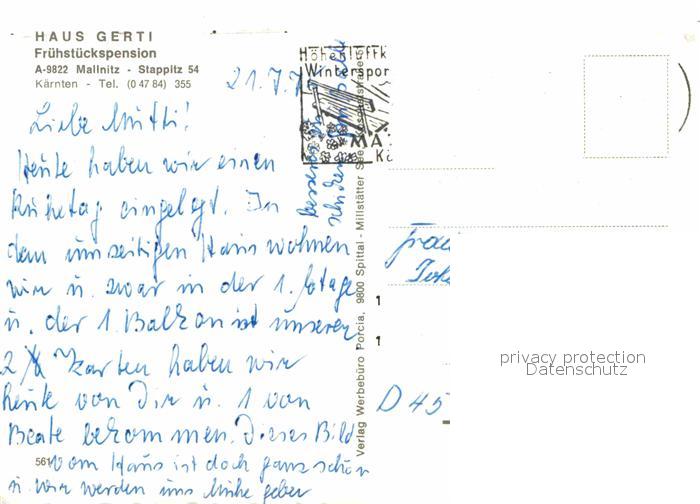 HAUS GERTI
Frühstückspension
A-9822 Mallnitz - Stappitz 54
Kärnten - Tel. (0 47 84) 355
21.7.7
Liebe Mutti!
Heute haben wir einen
Ruhetag eingelegt. In
dem umseitigen Haus wohnen
wir u. zwar in der 1. Etage
u. der 1. Balkon ist unserer
2 Karten haben wir
heute von Dir u. 1 von
Beate bekommen. Dieses Bild
vom Haus ist doch ganz schön
u. wir werden uns Mühe geben
561
Höhenluftk
Winterspor
MA
Kä
Verlag Werbebüro Porcia, 9800 Spittal - Millstätter See
Frau
1
1
D 45
privacy protection
Datenschutz